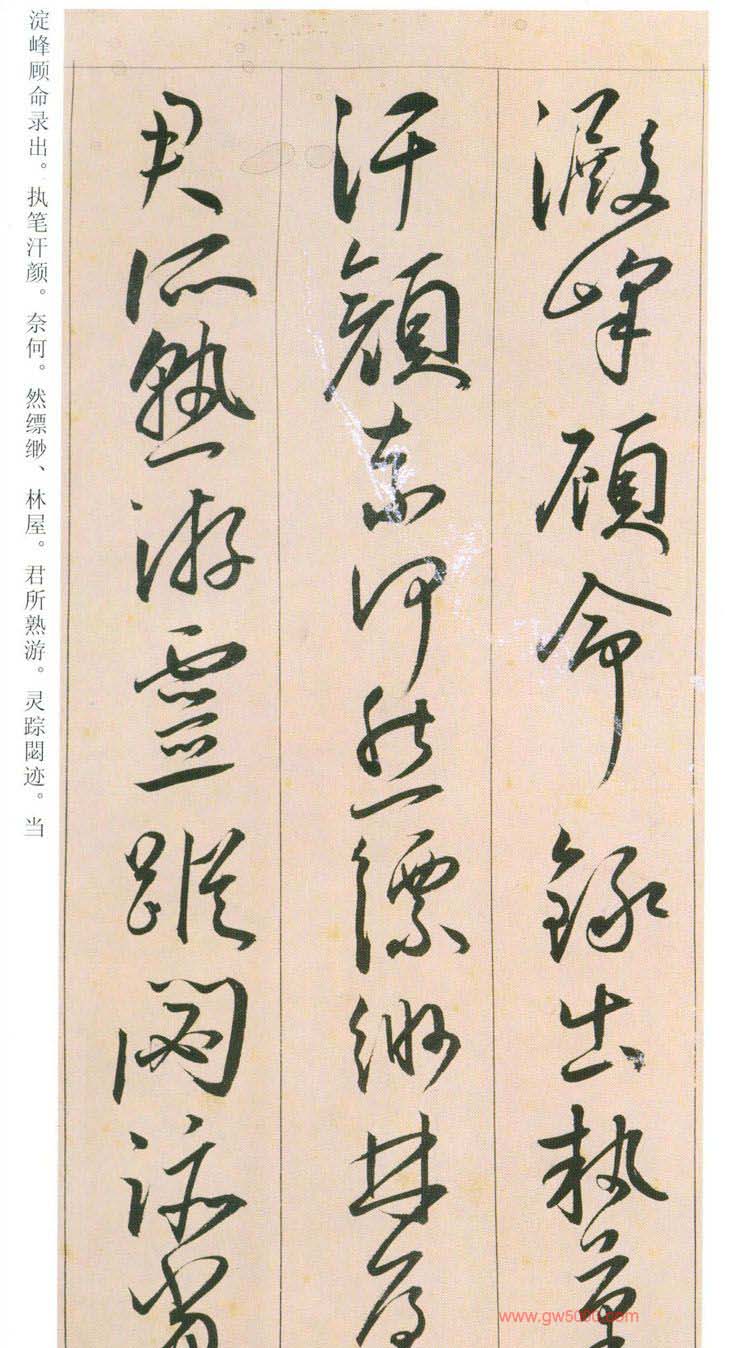 澱峰顧命錄出執筆
汗顏柰何然縹緲林屋
君所熟游靈蹤閟迹當
淀峰顾命录出。执笔汗颜。奈何。然缥缈、林屋。君所熟游。灵踪閟迹。当
www.gw5000.com